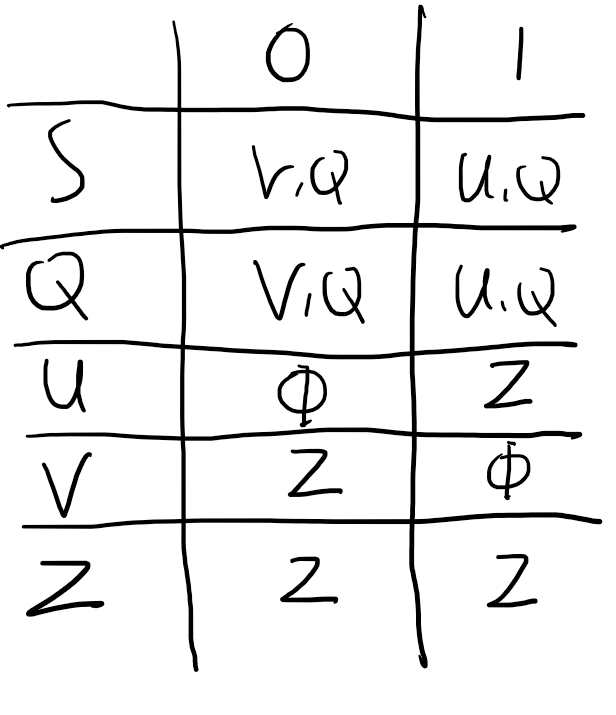 0 1
S V,Q U,Q
Q V,Q U,Q
U Φ Z
V Z Φ
Z Z Z